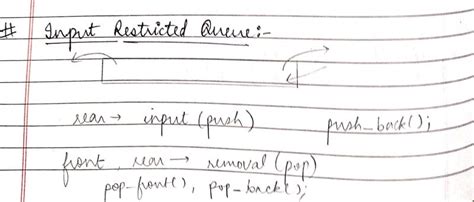 # Input Restricted Queue:-
rear → input (push) push_back();
front, rear → removal (pop)
pop-front(), pop-back();